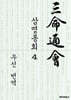 三命通會
삼명통회 4
무신 번역